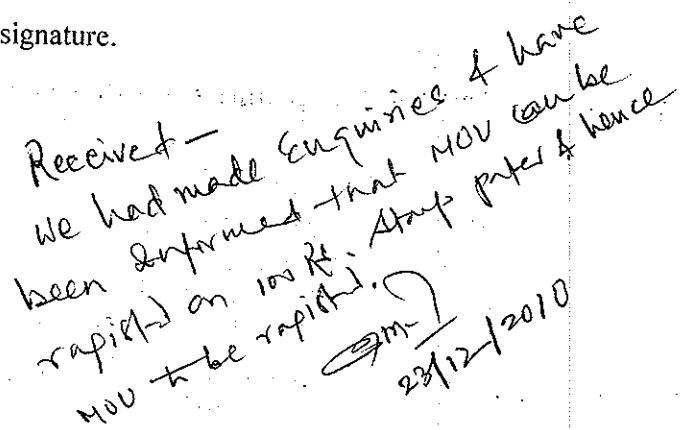 signature.
Received —
We had made Enquiries & have
been informed that MOU can be
registd on 100 Rs. Stamp paper & hence
MOU to be registd.
23/12/2010